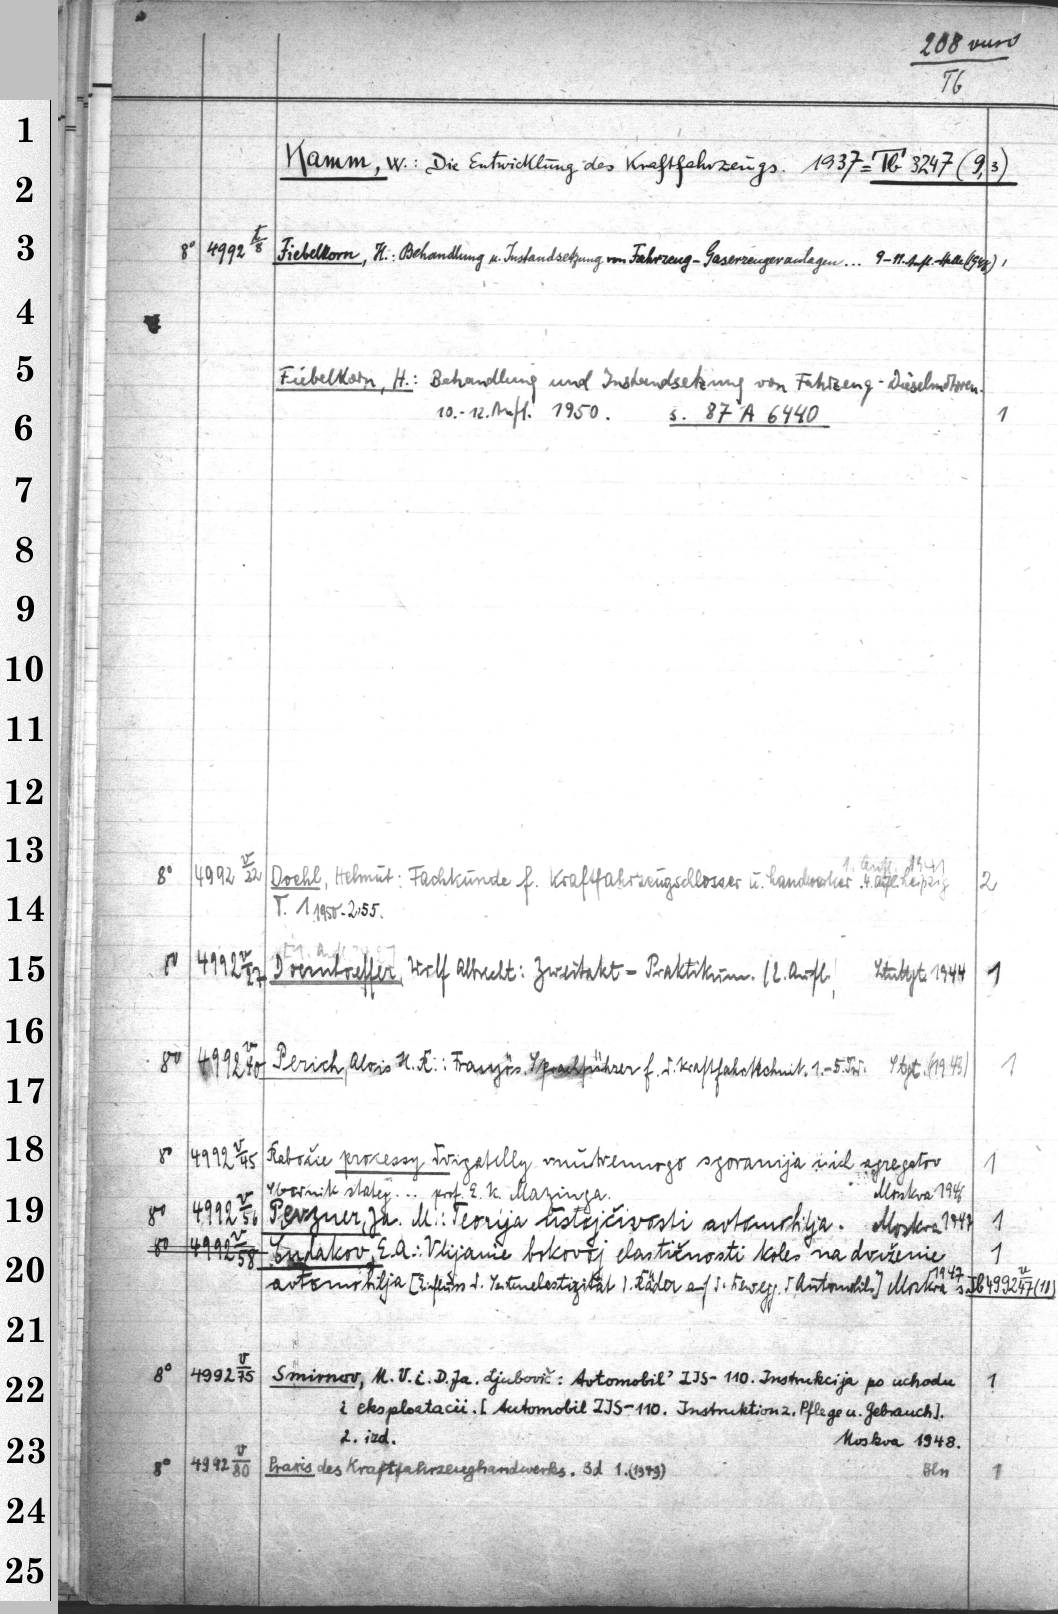 208 verso
Tb
1
Kamm, W.: Die Entwicklung des Kraftfahrzeugs. 1937 = Tb 3247 (9,3)
2
3
8° 4992 t/8 Fiebelkorn, H.: Behandlung u. Instandsetzung von Fahrzeug-Gaserzeugeranlagen... 9-11. Aufl. Halle
4
5
Fiebelkorn, H.: Behandlung und Instandsetzung von Fahrzeug-Dieselmotoren.
6
10.-12. Aufl. 1950. s. 87 A 6440 1
7
8
9
10
11
12
13
1. Aufl. 1941
8° 4992 v/22 Doehl, Helmut: Fachkunde f. Kraftfahrzeugschlosser u. handwerker. 4. Aufl. Leipzig 2
14
T. 1 1950-2.55.
15
8° 4992 v/27 Doerntreffer, Wolf Albrecht: Zweitakt-Praktikum. (2. Aufl. Stuttgt. 1944 1
16
8° 4992 v/40 Perich, Alois H. K.: Französ. Sprachführer f. d. Kraftfahrttechnik. 1.-5. Tsd. Stgt. (1943) 1
17
18
8° 4992 v/45 Rabočie processy dvigatelej vnutrennogo sgoranija i ich agregatov 1
Sbornik statej... prof. E. K. Mazinga. Moskva
19
8° 4992 v/56 Pevzner, Ja. M.: Teorija ustojčivosti avtomobilja. Moskva 1947 1
8° 4992 v/58 Čudakov, E. A.: Vlijanie bokovoj elastičnosti koles na dviženie 1
20
avtomobilja [Einfluss d. Seitenelastizität d. Räder auf d. Bewegg. d. Automobils] Moskva 1947 s. Tb 4992 v/47 (10)
21
22
8° 4992 v/75 Smirnov, M. V. i. D. Ja. Ljubovič: Avtomobil' ZIS-110. Instrukcija po uchodu 1
i eksploatacii. [Automobil ZIS-110. Instruktion z. Pflege u. Gebrauch].
23
2. izd. Moskva 1948.
8° 4992 v/80 Praxis des Kraftfahrzeughandwerks. Bd 1. (1949) Bln 1
24
25